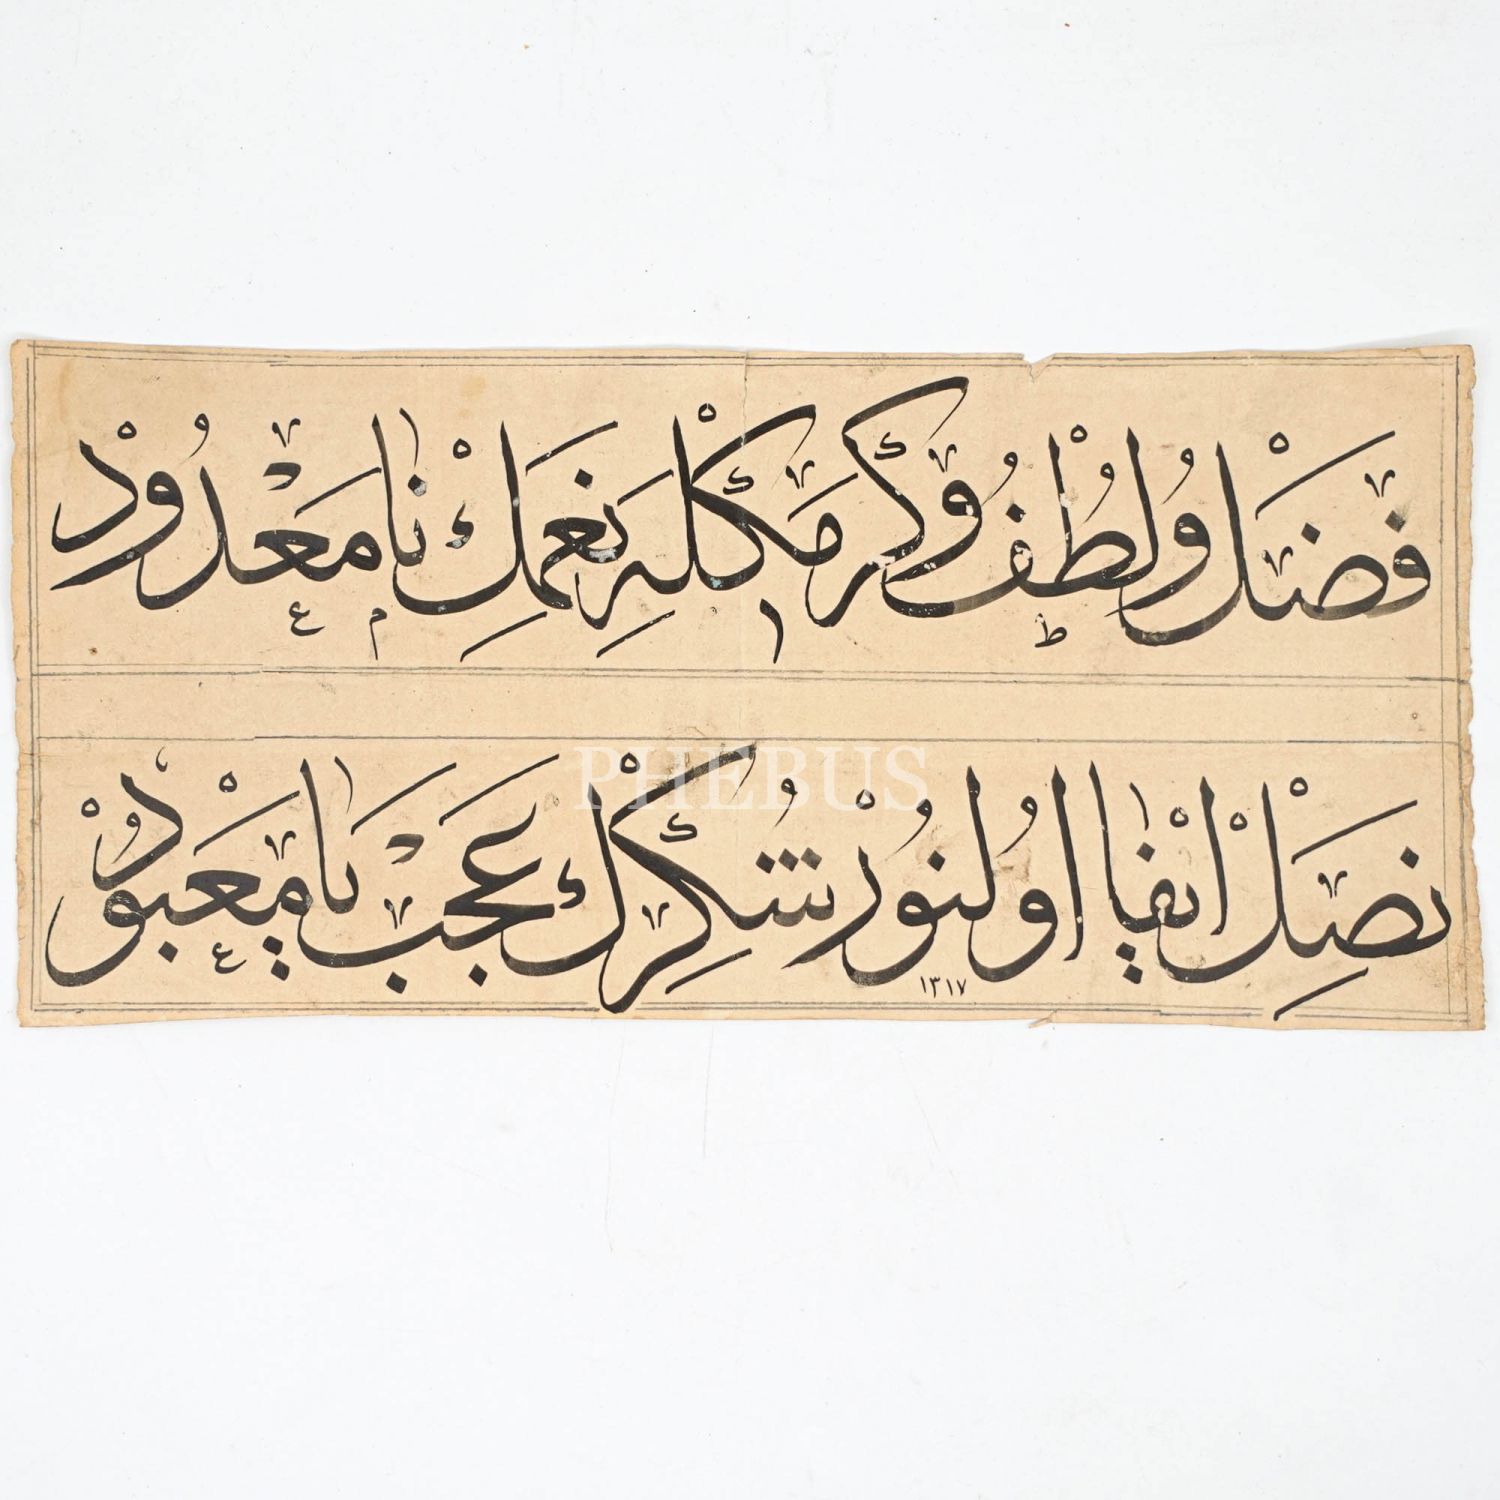 فَضْلُ وُلُطْفُ وَكَرَمِكْلَه نِعَمِكْ نَامَعْدُودْ
نَصِلْ اِيْفَا اُولُنُورْ شُكْرِكْ عَجَبْ يَا مَعْبُودْ
١٣١٧
PHEBUS